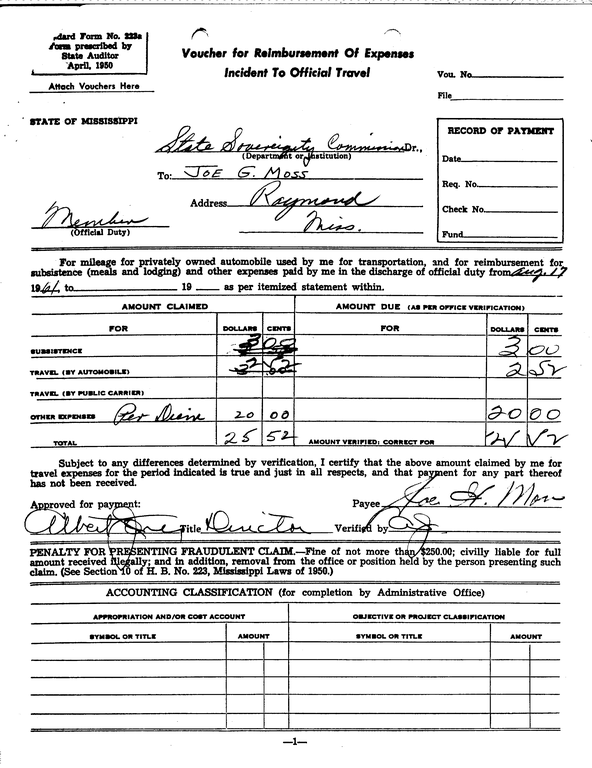 dard Form No. 223a
form prescribed by
State Auditor
April, 1950
Attach Vouchers Here
Voucher for Reimbursement Of Expenses
Incident To Official Travel
Vou. No.
File
STATE OF MISSISSIPPI
State Sovereignty Commission Dr.,
(Department or Institution)
To: JOE G. MOSS
Address Raymond
Miss.
Member
(Official Duty)
RECORD OF PAYMENT
Date
Req. No.
Check No.
Fund
For mileage for privately owned automobile used by me for transportation, and for reimbursement for
subsistence (meals and lodging) and other expenses paid by me in the discharge of official duty from Aug. 17
1961, to 19 as per itemized statement within.
AMOUNT CLAIMED AMOUNT DUE (AS PER OFFICE VERIFICATION)
FOR DOLLARS CENTS FOR DOLLARS CENTS
SUBSISTENCE 3 00
TRAVEL (BY AUTOMOBILE) 2 52
TRAVEL (BY PUBLIC CARRIER)
OTHER EXPENSES Per Diem 20 00 20 00
TOTAL 25 52 AMOUNT VERIFIED; CORRECT FOR
Subject to any differences determined by verification, I certify that the above amount claimed by me for
travel expenses for the period indicated is true and just in all respects, and that payment for any part thereof
has not been received.
Approved for payment: Payee Joe G. Moss
Albert Jones Title Director Verified by
PENALTY FOR PRESENTING FRAUDULENT CLAIM.—Fine of not more than $250.00; civilly liable for full
amount received illegally; and in addition, removal from the office or position held by the person presenting such
claim. (See Section 10 of H. B. No. 223, Mississippi Laws of 1950.)
ACCOUNTING CLASSIFICATION (for completion by Administrative Office)
APPROPRIATION AND/OR COST ACCOUNT OBJECTIVE OR PROJECT CLASSIFICATION
SYMBOL OR TITLE AMOUNT SYMBOL OR TITLE AMOUNT
—1—